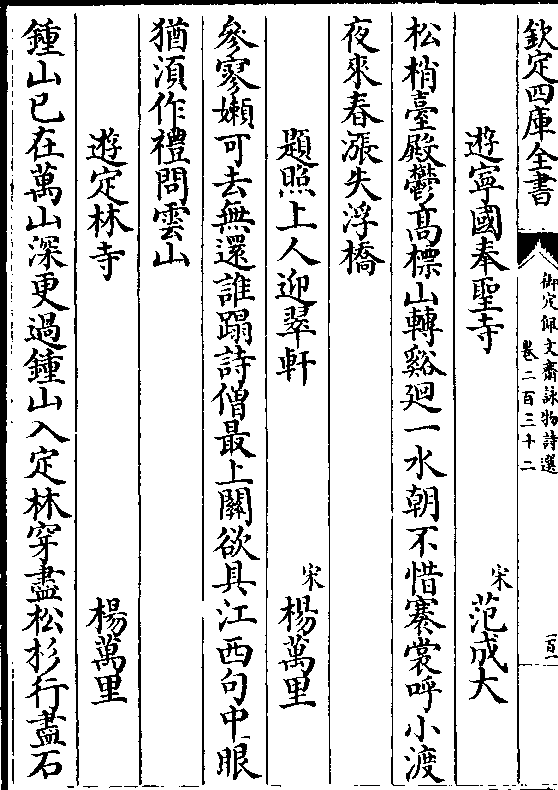 欽定四庫全書
御定佩文齋詠物詩選
卷二百三十二
百一
遊寧國奉聖寺 宋 范成大
松梢臺殿鬱髙標山轉谿廻一水朝不惜褰裳呼小渡
夜來春漲失浮橋
題照上人迎翠軒 宋 楊萬里
參寥嬾可去無還誰蹋詩僧最上關欲具江西句中眼
猶湏作禮問雲山
遊定林寺 楊萬里
鍾山已在萬山深更過鍾山入定林穿盡松杉行盡石